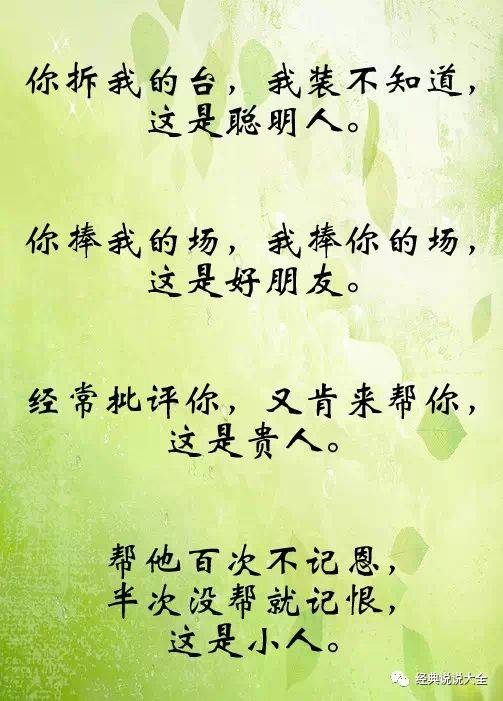 你拆我的台，我装不知道，
这是聪明人。
你捧我的场，我捧你的场，
这是好朋友。
经常批评你，又肯来帮你，
这是贵人。
帮他百次不记恩，
半次没帮就记恨，
这是小人。
经典说说大全